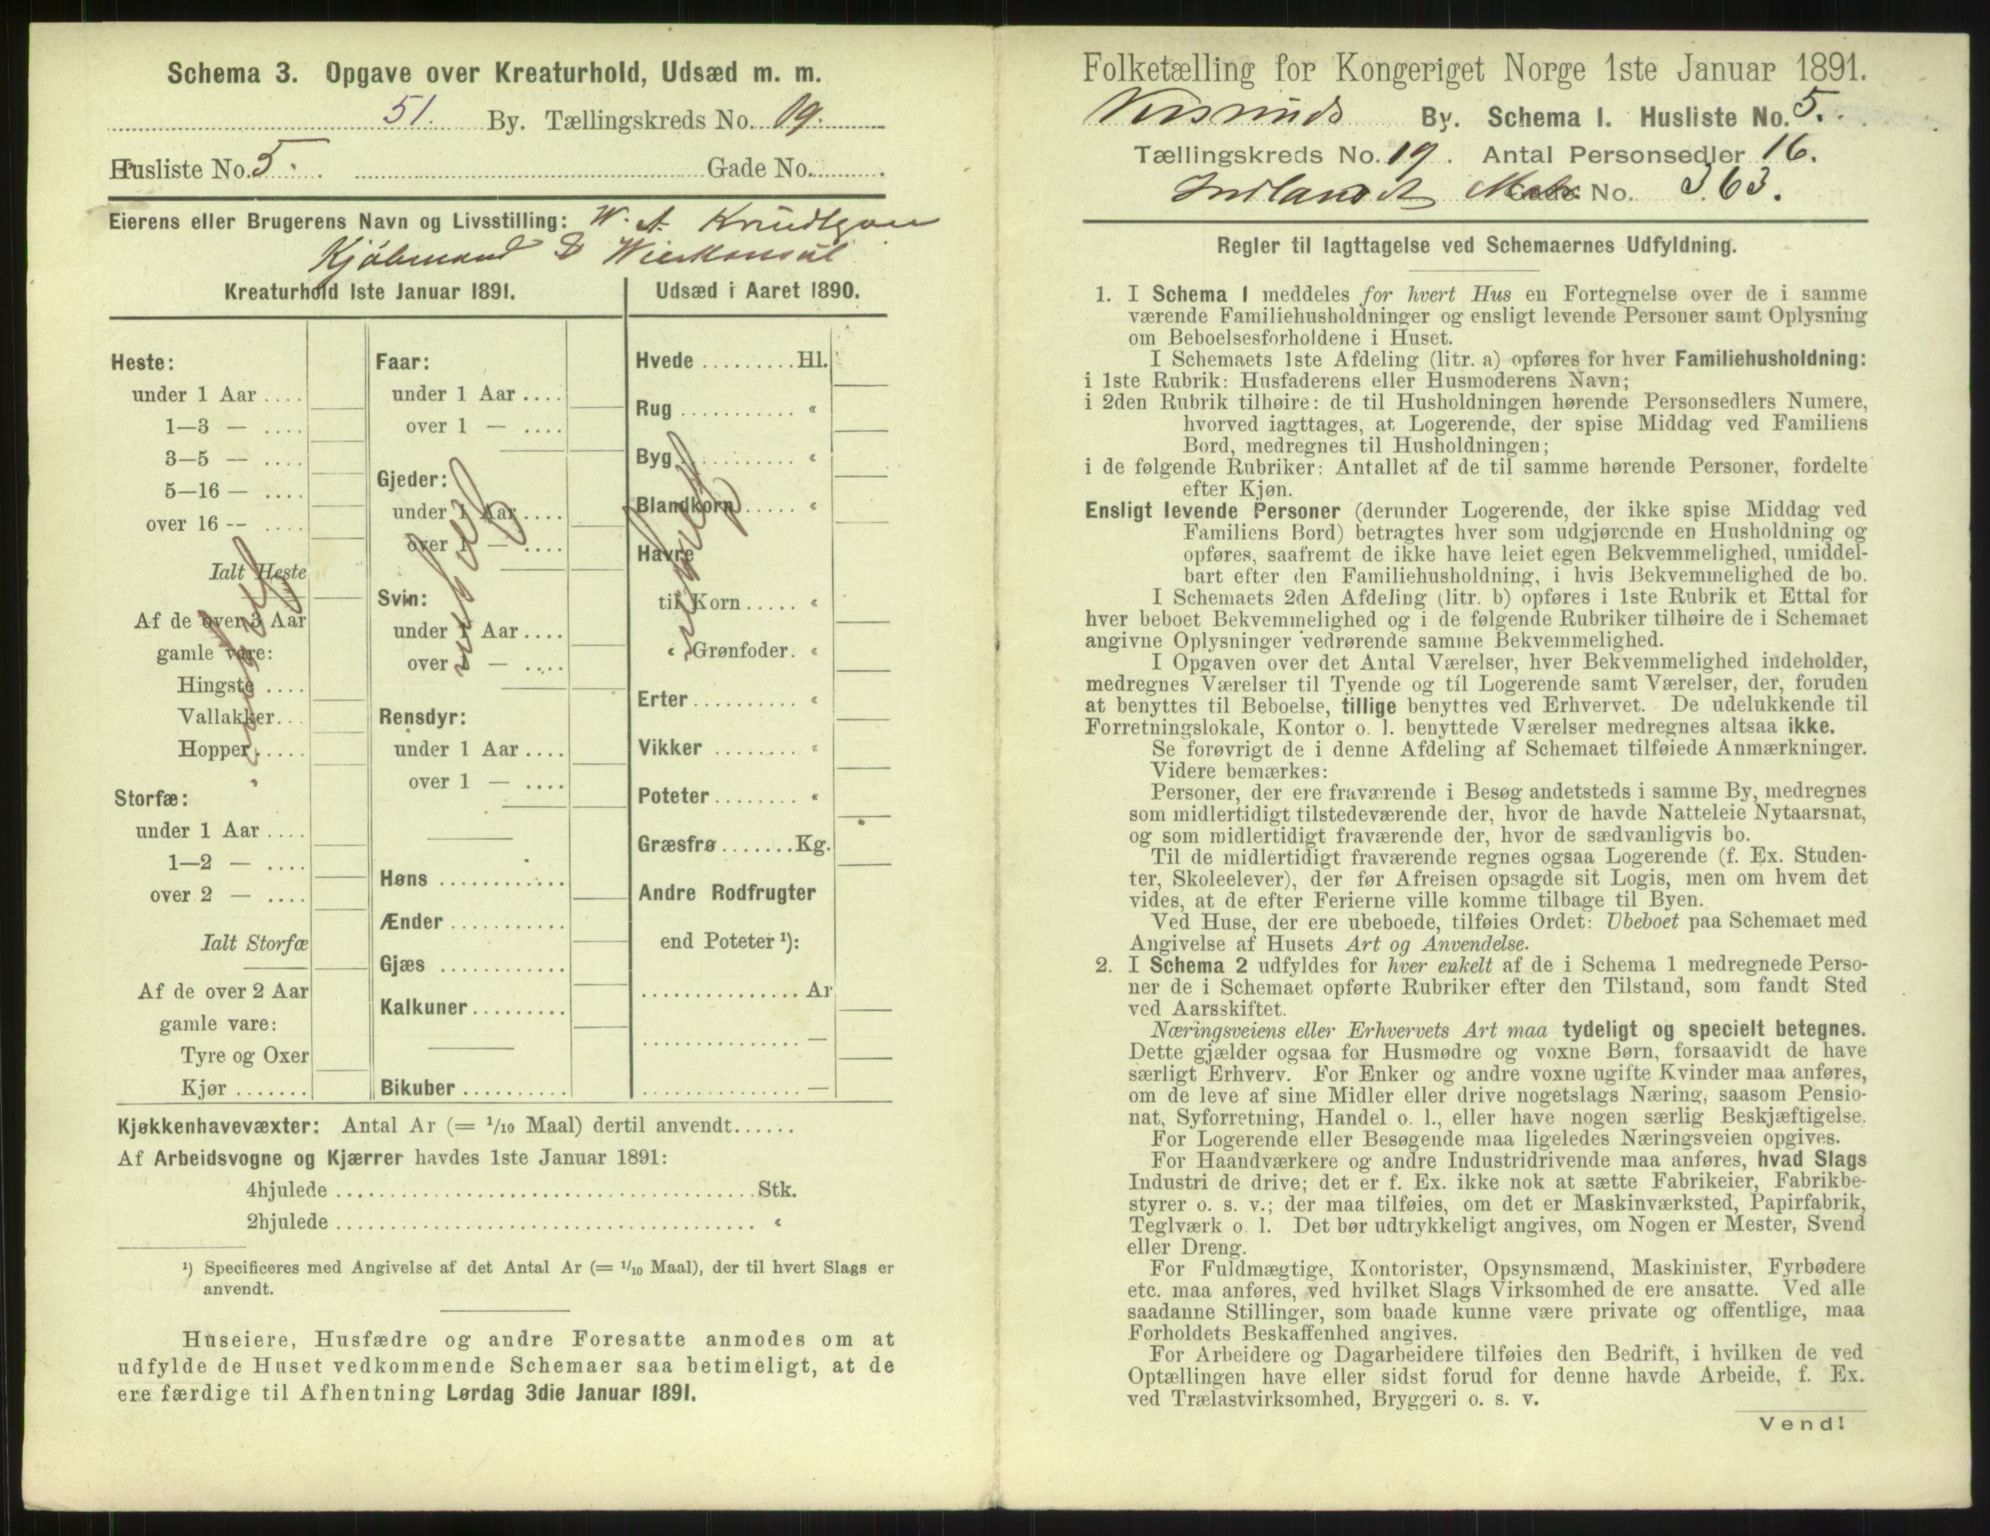 Schema 3. Opgave over Kreaturhold, Udsæd m. m.
51. By. Tællingskreds No. 19.
Husliste No. 5. Gade No.
Eierens eller Brugerens Navn og Livsstilling: W. A. Knudtzon
Kjøbmand & Vicekonsul
Kreaturhold 1ste Januar 1891.
Heste:
under 1 Aar
1—3 —
3—5 —
5—16 —
over 16 —
Ialt Heste
Af de over 3 Aar
gamle vare:
Hingste
Vallakker
Hopper
Storfæ:
under 1 Aar
1—2 —
over 2 —
Ialt Storfæ
Af de over 2 Aar
gamle vare:
Tyre og Oxer
Kjør
Faar:
under 1 Aar
over 1 —
Gjeder:
under 1 Aar
over 1 —
Svin:
under 1 Aar
over 1 —
Rensdyr:
under 1 Aar
over 1 —
Høns
Ænder
Gjæs
Kalkuner
Bikuber
Udsæd i Aaret 1890.
Hvede Hl.
Rug "
Byg "
Blandkorn "
Havre
til Korn "
" Grønfoder "
Erter "
Vikker "
Poteter "
Græsfrø Kg.
Andre Rodfrugter
end Poteter ¹):
Ar
—
—
Kjøkkenhavevæxter: Antal Ar (= 1/10 Maal) dertil anvendt
Af Arbeidsvogne og Kjærrer havdes 1ste Januar 1891:
4hjulede Stk.
2hjulede "
¹) Specificeres med Angivelse af det Antal Ar (= 1/10 Maal), der til hvert Slags er
anvendt.
Huseiere, Husfædre og andre Foresatte anmodes om at
udfylde de Huset vedkommende Schemaer saa betimeligt, at de
ere færdige til Afhentning Lørdag 3die Januar 1891.
Folketælling for Kongeriget Norge 1ste Januar 1891.
By. Schema I. Husliste No. 5.
Tællingskreds No. 19. Antal Personsedler 16.
Indlandet Matr. No. 363.
Regler til Iagttagelse ved Schemaernes Udfyldning.
1. I Schema 1 meddeles for hvert Hus en Fortegnelse over de i samme
værende Familiehusholdninger og ensligt levende Personer samt Oplysning
om Beboelsesforholdene i Huset.
I Schemaets 1ste Afdeling (litr. a) opføres for hver Familiehusholdning:
i 1ste Rubrik: Husfaderens eller Husmoderens Navn;
i 2den Rubrik tilhøire: de til Husholdningen hørende Personsedlers Numere,
hvorved iagttages, at Logerende, der spise Middag ved Familiens
Bord, medregnes til Husholdningen;
i de følgende Rubriker: Antallet af de til samme hørende Personer, fordelte
efter Kjøn.
Ensligt levende Personer (derunder Logerende, der ikke spise Middag ved
Familiens Bord) betragtes hver som udgjørende en Husholdning og
opføres, saafremt de ikke have leiet egen Bekvemmelighed, umiddel-
bart efter den Familiehusholdning, i hvis Bekvemmelighed de bo.
I Schemaets 2den Afdeling (litr. b) opføres i 1ste Rubrik et Ettal for
hver beboet Bekvemmelighed og i de følgende Rubriker tilhøire de i Schemaet
angivne Oplysninger vedrørende samme Bekvemmelighed.
I Opgaven over det Antal Værelser, hver Bekvemmelighed indeholder,
medregnes Værelser til Tyende og til Logerende samt Værelser, der, foruden
at benyttes til Beboelse, tillige benyttes ved Erhvervet. De udelukkende til
Forretningslokale, Kontor o. l. benyttede Værelser medregnes altsaa ikke.
Se forøvrigt de i denne Afdeling af Schemaet tilføiede Anmærkninger.
Videre bemærkes:
Personer, der ere fraværende i Besøg andetsteds i samme By, medregnes
som midlertidigt tilstedeværende der, hvor de havde Natteleie Nytaarsnat,
og som midlertidigt fraværende der, hvor de sædvanligvis bo.
Til de midlertidigt fraværende regnes ogsaa Logerende (f. Ex. Studen-
ter, Skoleelever), der før Afreisen opsagde sit Logis, men om hvem det
vides, at de efter Ferierne ville komme tilbage til Byen.
Ved Huse, der ere ubeboede, tilføies Ordet: Ubeboet paa Schemaet med
Angivelse af Husets Art og Anvendelse.
2. I Schema 2 udfyldes for hver enkelt af de i Schema 1 medregnede Perso-
ner de i Schemaet opførte Rubriker efter den Tilstand, som fandt Sted
ved Aarsskiftet.
Næringsveiens eller Erhvervets Art maa tydeligt og specielt betegnes.
Dette gjælder ogsaa for Husmødre og voxne Børn, forsaavidt de have
særligt Erhverv. For Enker og andre voxne ugifte Kvinder maa anføres,
om de leve af sine Midler eller drive nogetslags Næring, saasom Pensio-
nat, Syforretning, Handel o. l., eller have nogen særlig Beskjæftigelse.
For Logerende eller Besøgende maa ligeledes Næringsveien opgives.
For Haandværkere og andre Industridrivende maa anføres, hvad Slags
Industri de drive; det er f. Ex. ikke nok at sætte Fabrikeier, Fabrikbe-
styrer o. s. v.; der maa tilføies, om det er Maskinværksted, Papirfabrik,
Teglværk o. l. Det bør udtrykkeligt angives, om Nogen er Mester, Svend
eller Dreng.
For Fuldmægtige, Kontorister, Opsynsmænd, Maskinister, Fyrbødere
etc. maa anføres, ved hvilket Slags Virksomhed de ere ansatte. Ved alle
saadanne Stillinger, som baade kunne være private og offentlige, maa
Forholdets Beskaffenhed angives.
For Arbeidere og Dagarbeidere tilføies den Bedrift, i hvilken de ved
Optællingen have eller sidst forud for denne havde Arbeide, f. Ex.
ved Trælastvirksomhed, Bryggeri o. s. v.
Vend!